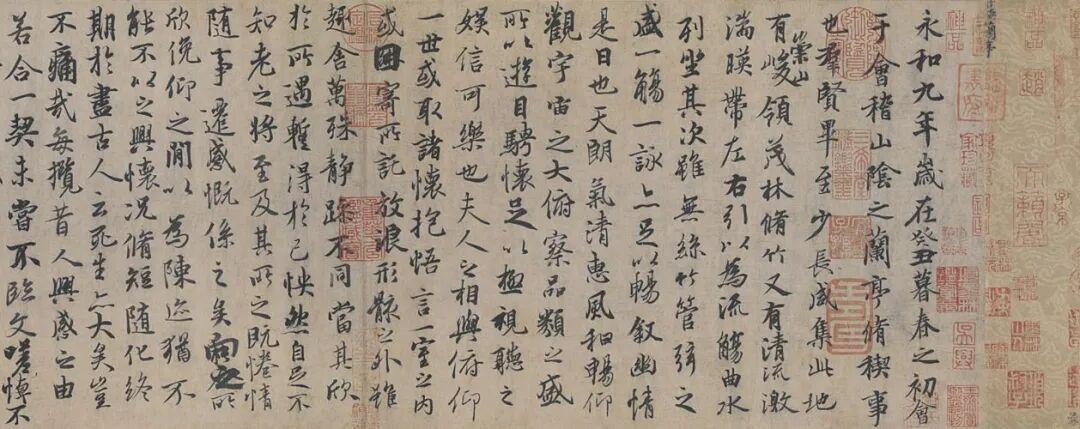 永和九年歲在癸丑暮春之初會
于會稽山陰之蘭亭脩稧事
也羣賢畢至少長咸集此地
有崇山峻領茂林脩竹又有清流激
湍暎帶左右引以為流觴曲水
列坐其次雖無絲竹管弦之
盛一觴一詠亦足以暢敘幽情
是日也天朗氣清惠風和暢仰
觀宇宙之大俯察品類之盛
所以遊目騁懷足以極視聽之
娛信可樂也夫人之相與俯仰
一世或取諸懷抱悟言一室之內
或因寄所託放浪形骸之外雖
趣舍萬殊靜躁不同當其欣
於所遇蹔得於己怏然自足不
知老之將至及其所之既惓情
隨事遷感慨係之矣向之所
欣俛仰之間以為陳迹猶不
能不以之興懷況脩短隨化終
期於盡古人云死生亦大矣豈
不痛哉每攬昔人興感之由
若合一契未嘗不臨文嗟悼不